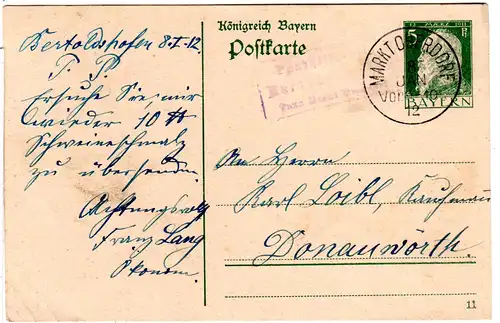 Bertoldshofen 8-I-12.
P. P.
Ersuche Sie, mir
wieder 10 ℔
Schweineschmalz
zu übersenden.
Achtungsvoll
Franz Lang
Ökonom.
Königreich Bayern
Postkarte
MARKTOBERDORF
8
JAN
VOR
12
5 Pf
BAYERN
An Herrn
Karl Loibl, Kaufmann
Donauwörth.
11